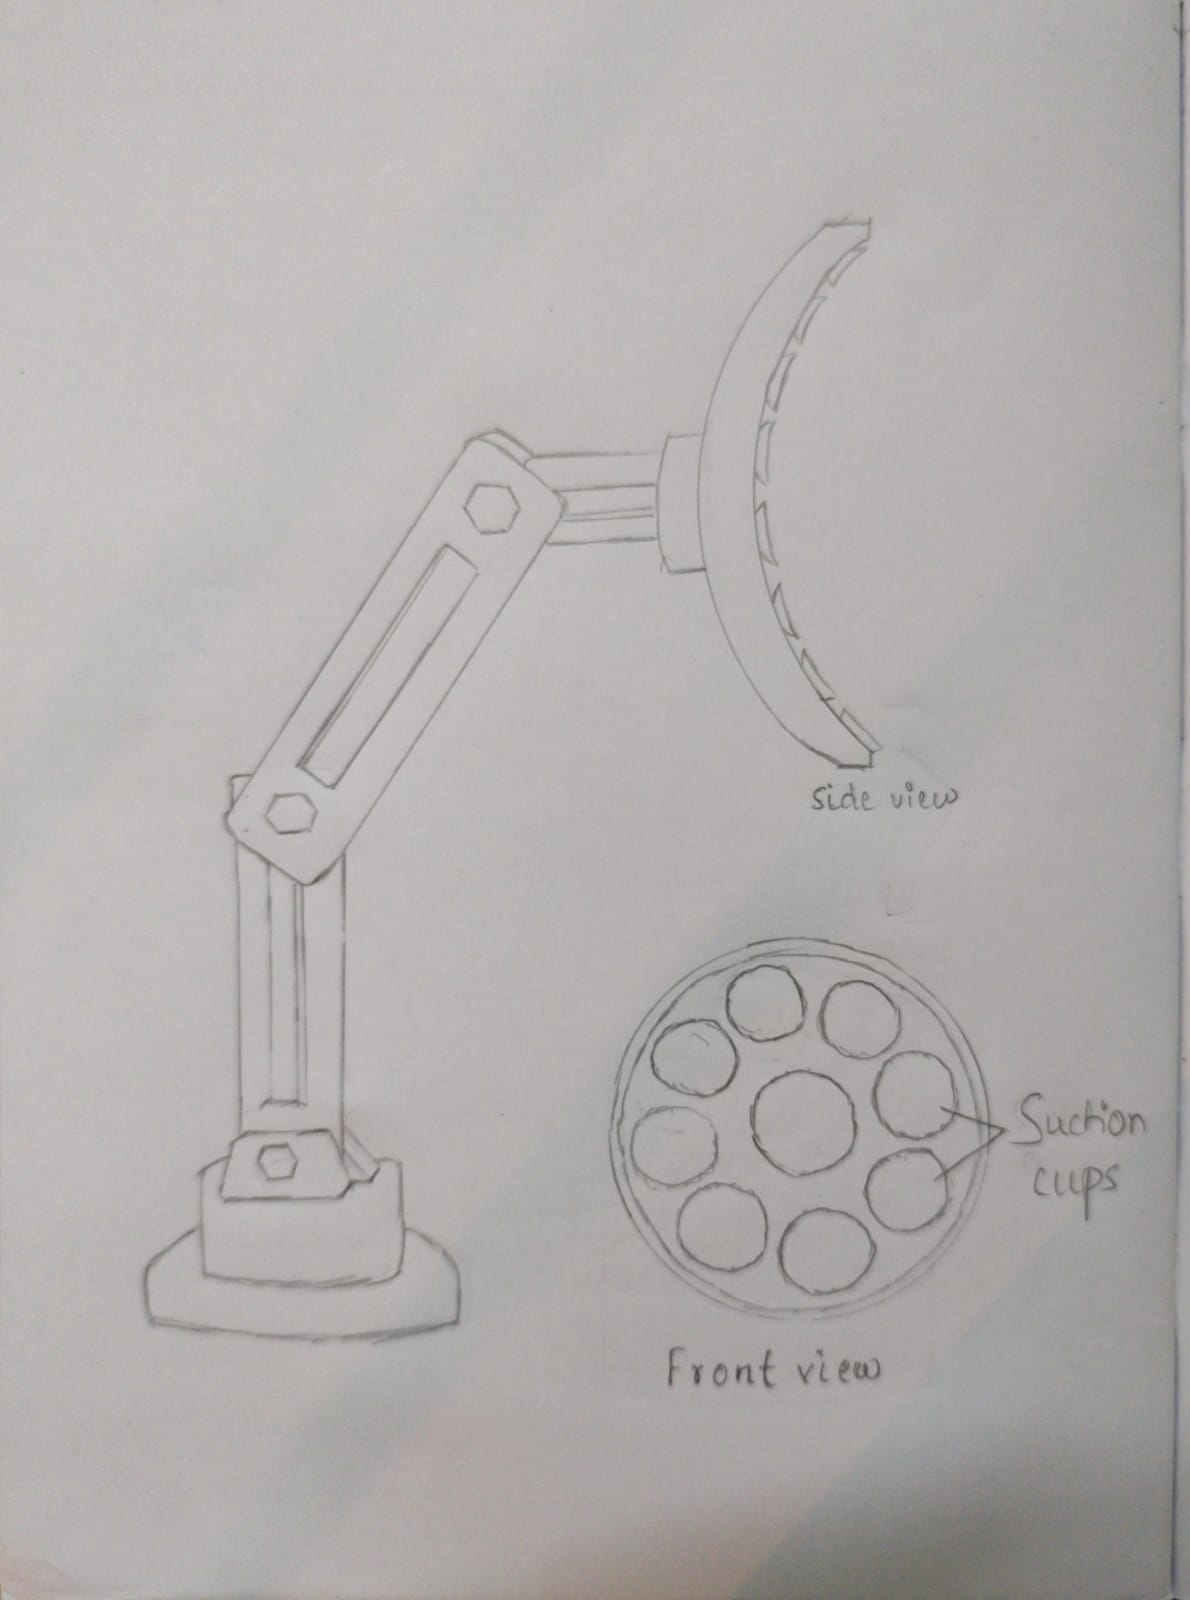 Side view
Suction
cups
Front view